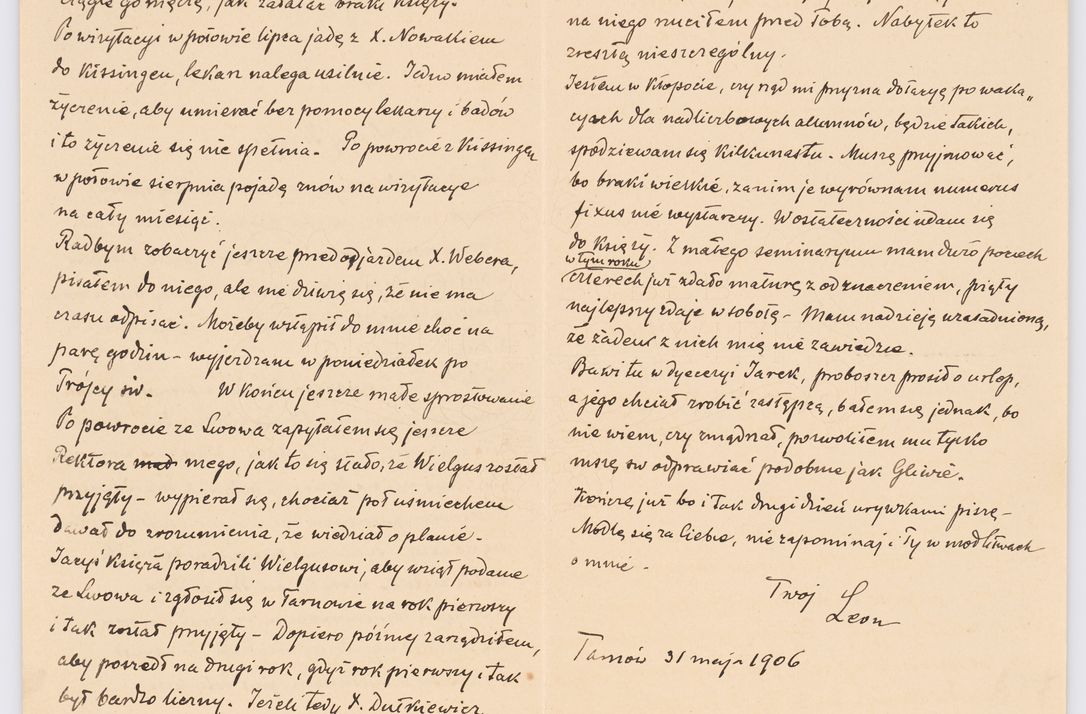 ciągle go męczą, jak załatać braki księży.
Po wizytacyi w połowie lipca jadę z X. Nowakiem
do Kissingen, lekarz nalega usilnie. Jedno miałem
życzenie, aby umierać bez pomocy lekarzy i badów
i to życzenie się nie spełnia. Po powrocie z Kissingen
w połowie sierpnia pojadę znów na wizytacye
na cały miesiąc.
Radbym zobaczyć jeszcze przed odjazdem X. Webera,
pisałem do niego, ale nie dziwię się, że nie ma
czasu odpisać. Możeby wstąpił do mnie choć na
parę godzin – wyjeżdżam w poniedziałek po
Trójcy św. W końcu jeszcze małe sprostowanie
Po powrocie ze Lwowa zapytałem się jeszcze
Rektora mego, jak to się stało, że Wielgus został
przyjęty – wypierał się, chociaż pół uśmiechem
dawał do zrozumienia, że wiedział o planie.
Jacyś księża poradzili Wielgusowi, aby wziął podanie
ze Lwowa i zgłosił się w Tarnowie na rok pierwszy
i tak został przyjęty – Dopiero później zarządziłem,
aby poszedł na drugi rok, gdyż rok pierwszy i tak
był bardzo liczny. Jeżeli tedy X. Dutkiewicz
na niego rzuciłem przed Tobą. Nabytek to
zresztą nieszczególny.
Jestem w kłopocie, czy rząd mi przyzna dotacyę po waka„
cyach dla nadliczbowych alumnów, będzie takich,
spodziewam się kilkunastu. Muszę przyjmować,
bo braki wielkie, zanim je wyrównam numerus
fixus nie wystarczy. W ostateczności udam się
do księży. Z małego seminaryum mam dużo pociech
w tym roku
czterech już zdało maturę z odznaczeniem, piąty
najlepszy zdaje w sobotę – Mam nadzieję uzasadnioną,
że żaden z nich mię nie zawiedzie.
Bawi tu w dyecezyi Jarek, proboszcz prosił o urlop,
a jego chciał zrobić zastępcą, bałem się jednak, bo
nie wiem, czy zmądrzał, pozwoliłem mu tylko
mszę św odprawiać podobnie jak Gliwie.
Kończę już bo i tak drugi dzień urywkami piszę –
Modlę się za Ciebie, nie zapominaj i Ty w modlitwach
o mnie –
Twój
Leon
Tarnów 31 maja 1906